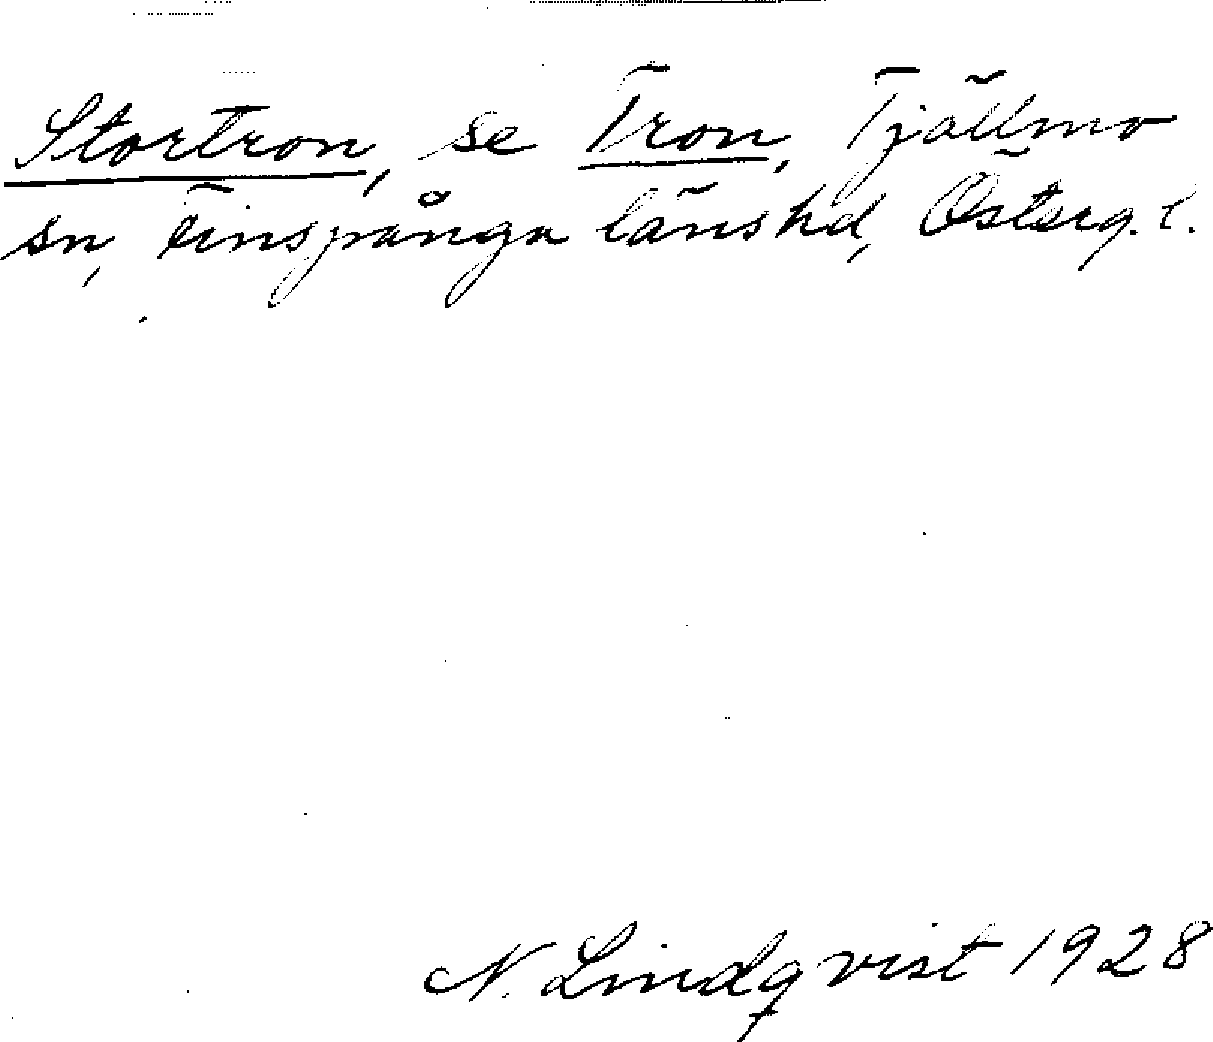 Stortron, se Tron, Tjällmo
sn, Finspånga länshd, Österg. l.
N. Lindqvist 1928